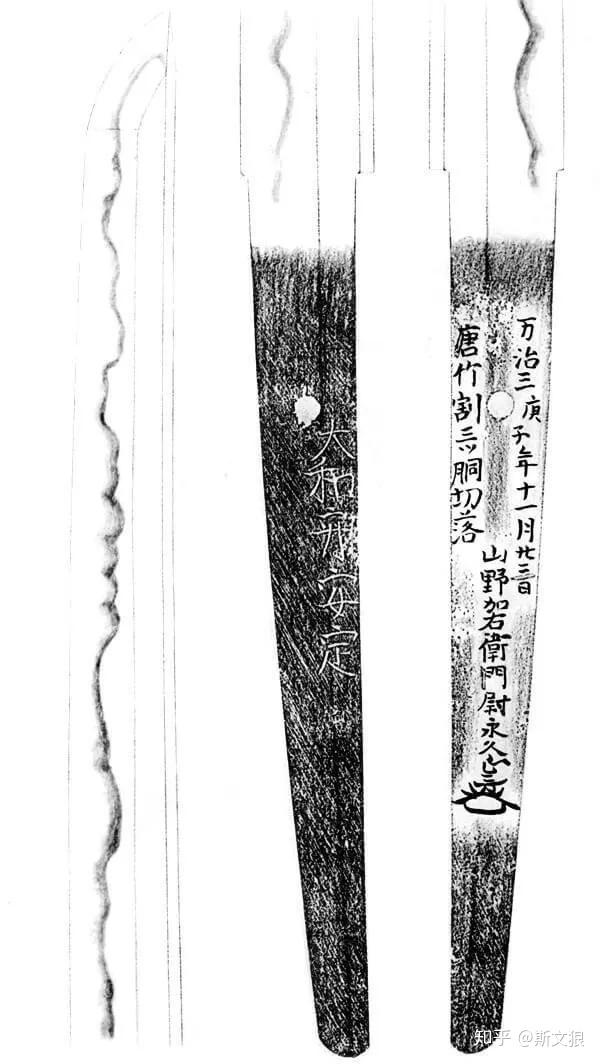 万治三庚子年十一月廿三日
山野加右衛門尉永久
唐竹割三ツ胴切落
大和守安定
知乎 @斯文狼